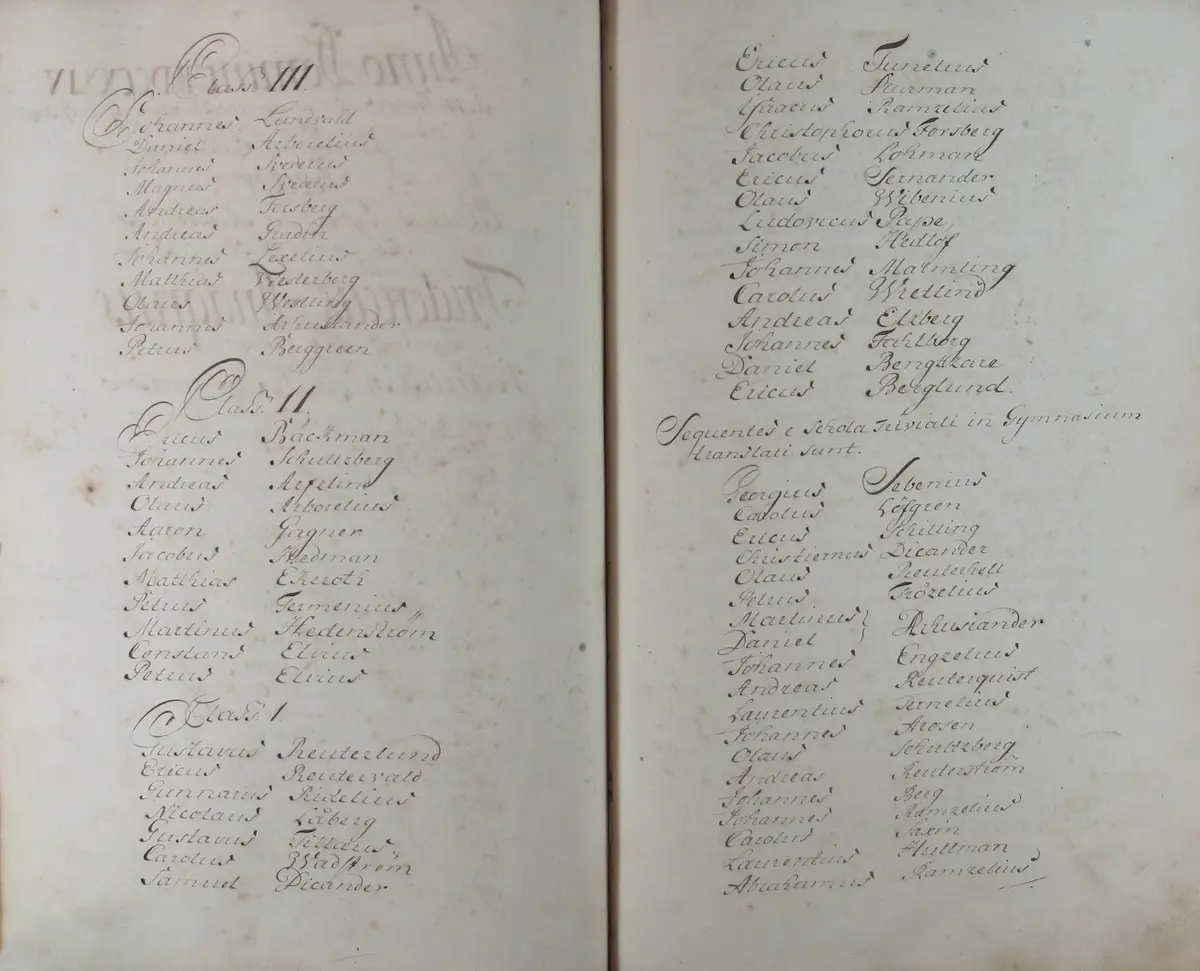 Class. III.
Johannes Lundvald
Daniel Arborelius
Johannes Svederus
Magnus Svederus
Andreas Forsberg
Andreas Gradin
Johannes Lexelius
Matthias Westerberg
Olaus
Johannes Arhusiander
Petrus Berggreen
Class. II.
Ericus Bäckman
Johannes Schultzberg
Andreas Arfzlind
Olaus Arborelius
Aaron Gagner
Jacobus Hedman
Matthias Ekeroth
Petrus Termenius
Martinus Hedenström
Constans Elvius
Petrus Elvius
Class. I.
Gustavus Reuterlund
Ericus Reutervald
Gunnarus Ridelius
Nicolaus Låberg
Gustavus Tillæus
Carolus Wadström
Samuel Dicander
Ericus Tunelius
Olaus Sturman
Isaacus Ramzelius
Christophorus Forsberg
Jacobus Lohman
Ericus Fernander
Olaus Wibenius
Ludovicus Pape
Simon Hedlöf
Johannes Malmling
Carolus Wretlind
Andreas Elfberg
Johannes Fahlberg
Daniel Bengtzare
Ericus Berglund.
Sequentes e Schola Triviali in Gymnasium
translati sunt.
Georgius Sebenius
Carolus Löfgren
Ericus Schilling
Christiernus Dicander
Olaus Reuterhell
Petrus Trözelius
Martinus } Arhusiander
Daniel
Johannes Engzelius
Andreas Reuterquist
Laurentius Ternelius
Johannes Arosen
Olaus Schultzberg
Andreas Reuterström
Johannes Berg
Johannes Ramzelius
Carolus Saxin
Laurentius Hyttman
Abrahamus Ramzelius